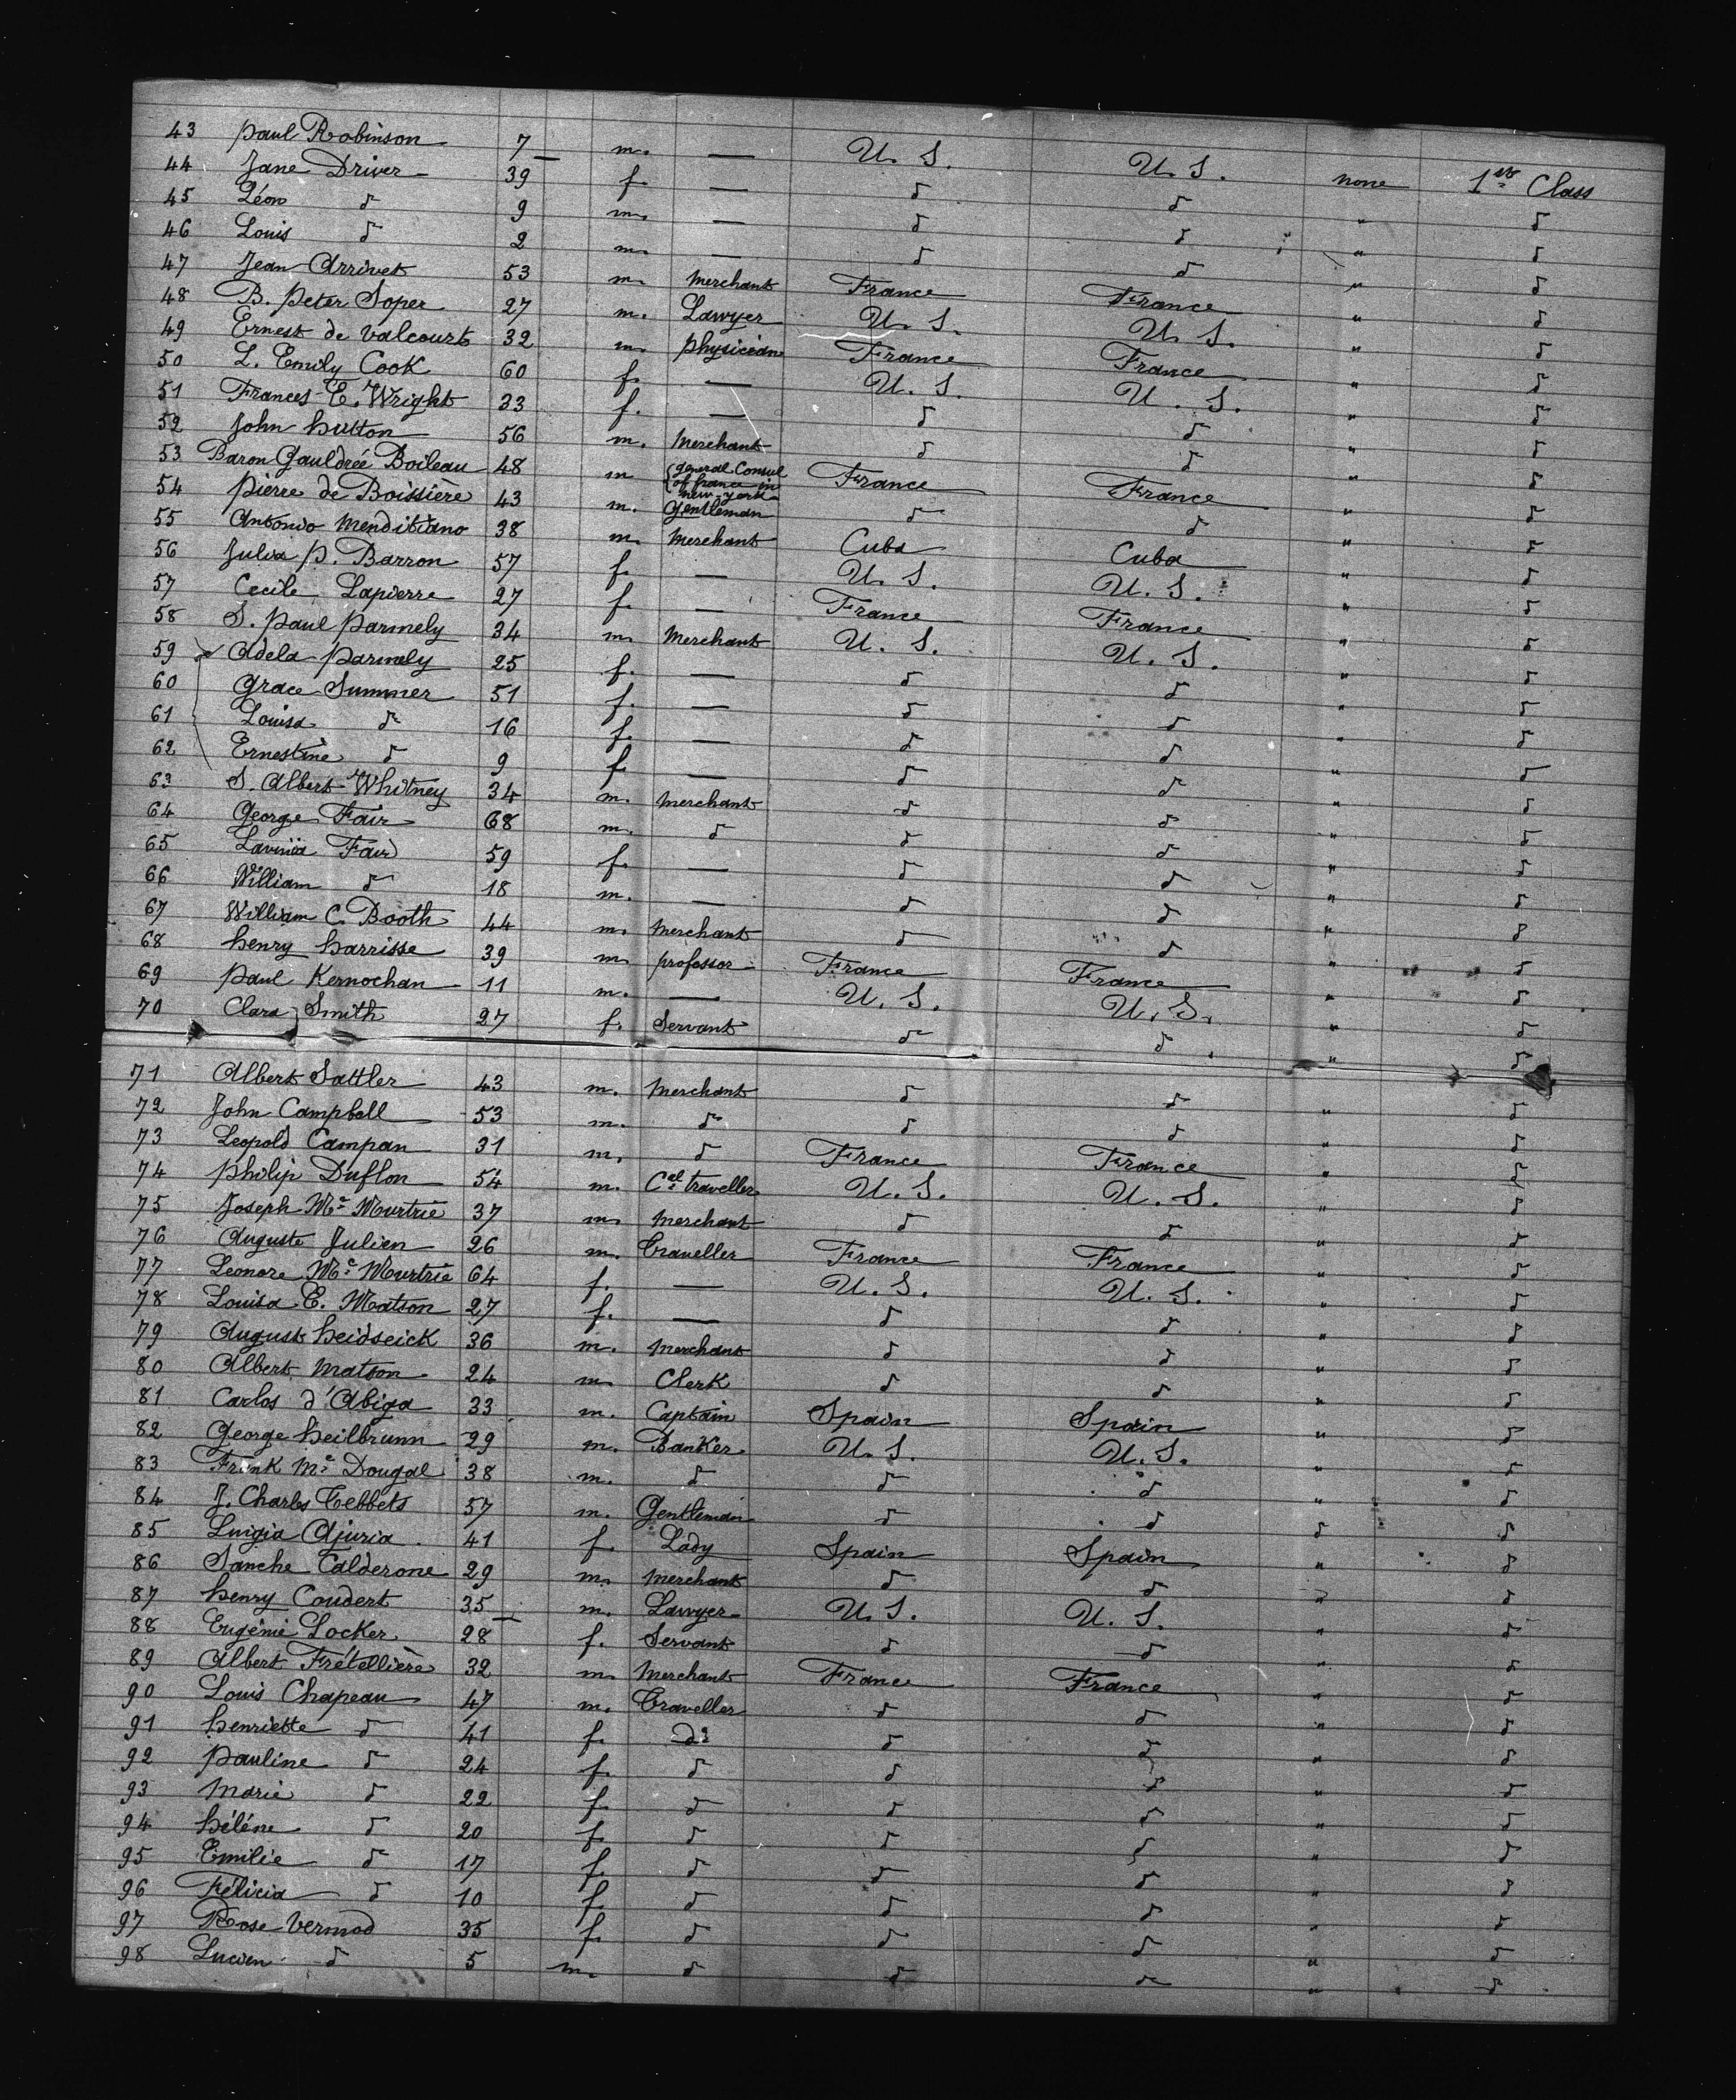 43 Paul Robinson 7 m. — U. S. U. S. none 1st Class
44 Jane Driver 39 f. — d d " d
45 Léon d 9 m. — d d " d
46 Louis d 2 m. — d d " d
47 Jean Arrivet 53 m. Merchant France France " d
48 B. Peter Soper 27 m. Lawyer U. S. U. S. " d
49 Ernest de Valcourt 32 m. Physician France France " d
50 L. Emily Cook 60 f. — U. S. U. S. " d
51 Frances E. Wright 33 f. — d d " d
52 John Hutton 56 m. Merchant d d " d
53 Baron Gauldrée Boileau 48 m General Consul of France in New-York France France " d
54 Pierre de Boissière 43 m. Gentleman d d " d
55 Antonio Menditiano 38 m. Merchant Cuba Cuba " d
56 Julia P. Barron 57 f. — U. S. U. S. " d
57 Cecile Lapierre 27 f. — France France " d
58 S. Paul Parmely 34 m. Merchant U. S. U. S. " d
59 Adela Parmely 25 f. — d d " d
60 Grace Summer 51 f. — d d " d
61 Louisa d 16 f. — d d " d
62 Ernestine d 9 f. — d d " d
63 S. Albert Whitney 34 m. Merchant d d " d
64 George Fair 68 m. d d d " d
65 Lavinia Fair 59 f. — d d " d
66 William d 18 m. — d d " d
67 William C. Booth 44 m. Merchant d d " d
68 Henry Harrisse 39 m. Professor France France " d
69 Paul Kernochan 11 m. — U. S. U. S. " d
70 Clara Smith 27 f. Servant d d " d
71 Albert Sattler 43 m. Merchant d d " d
72 John Campbell 53 m. d d d " d
73 Leopold Campan 31 m. d France France " d
74 Philip Duflon 54 m. Cal traveller U. S. U. S. " d
75 Joseph Mc Murtrie 37 m. Merchant d d " d
76 Auguste Julien 26 m. Traveller France France " d
77 Leonore Mc Murtrie 64 f. — U. S. U. S. " d
78 Louisa E. Matson 27 f. — d d " d
79 August Heidseick 36 m. Merchant d d " d
80 Albert Matson 24 m. Clerk d d " d
81 Carlos d'Abiga 33 m. Captain Spain Spain " d
82 George Heilbrunn 29 m. Banker U. S. U. S. " d
83 Frank Mc Dougal 38 m. d d d " d
84 J. Charles Tebbets 57 m. Gentleman d d d d
85 Luigia Ajuria 41 f. Lady Spain Spain " d
86 Sanche Calderone 29 m. Merchant d d " d
87 Henry Coudert 35 m. Lawyer U. S. U. S. " d
88 Eugénie Locker 28 f. Servant d d " d
89 Albert Frétellière 32 m. Merchant France France " d
90 Louis Chapeau 47 m. Traveller d d " d
91 Henriette d 41 f. do d d " d
92 Pauline d 24 f. d d d " d
93 Marie d 22 f. d d d " d
94 Hélène d 20 f. d d d " d
95 Emilie d 17 f. d d d " d
96 Félicia d 10 f. d d d " d
97 Rose Vermod 35 f. d d d " d
98 Lucien d 5 m. d d d " d